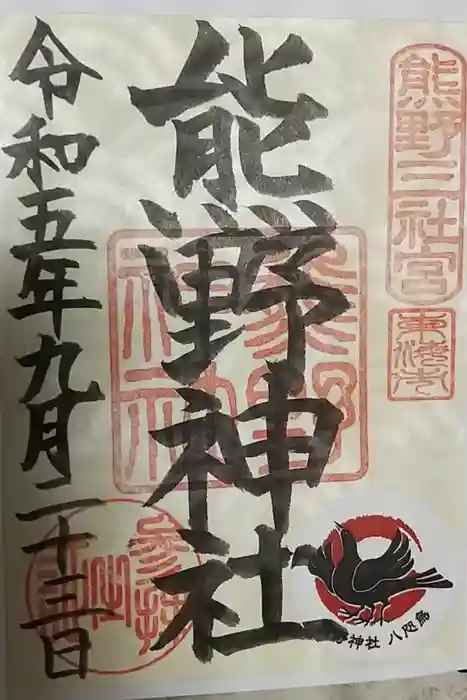 熊野三社宮
熊野神社
熊野神社
令和五年九月二十三日
神社 八咫烏